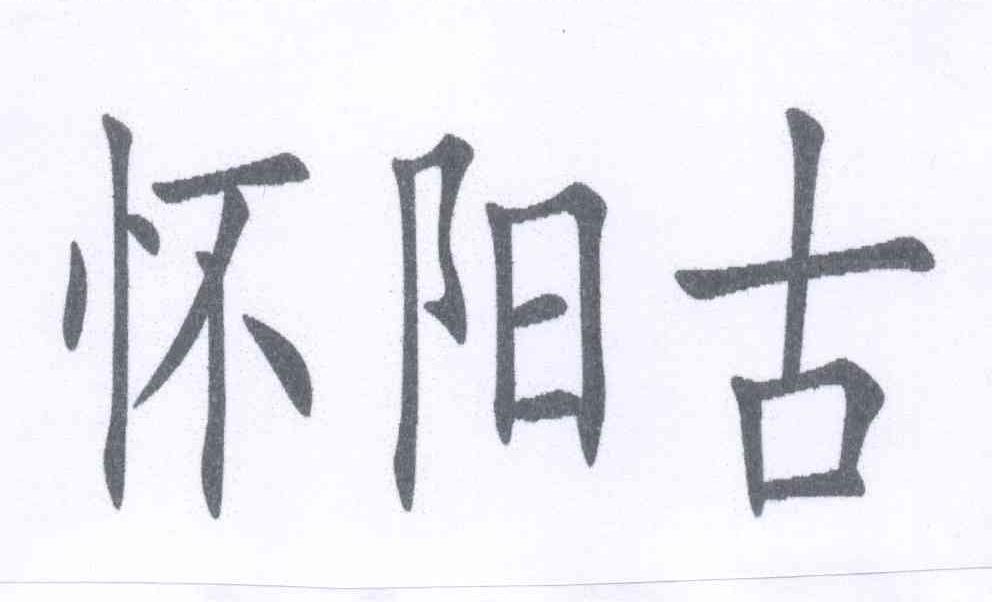 怀阳古